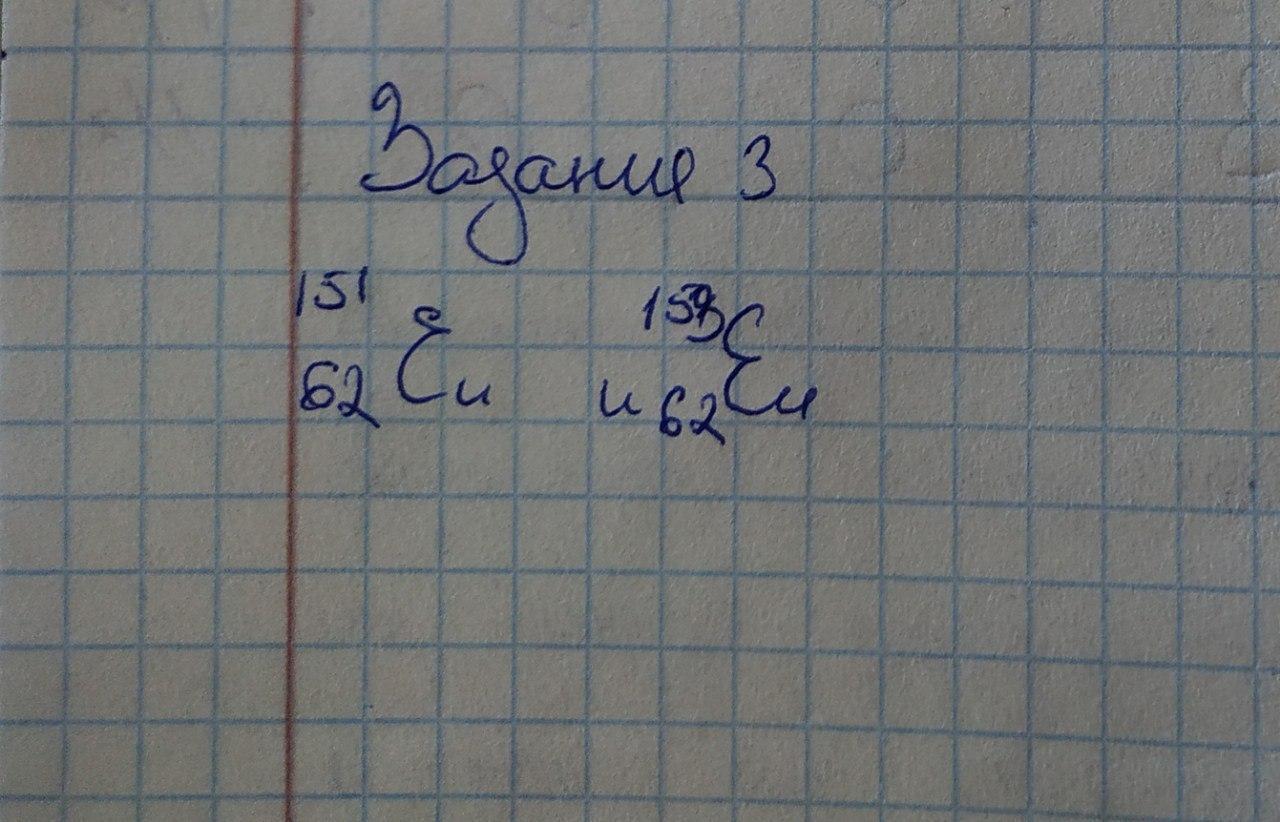 Задание 3
151 153
62 Eu и 62 Eu